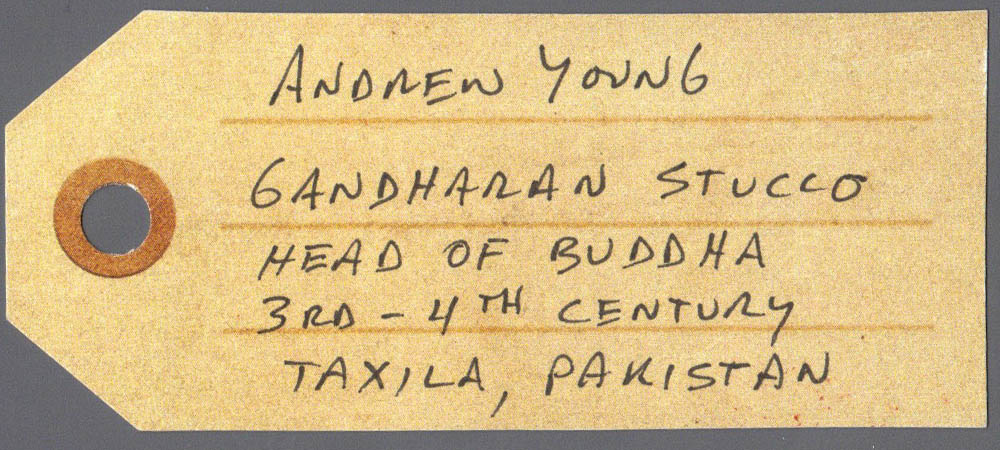 ANDREW YOUNG
GANDHARAN STUCCO
HEAD OF BUDDHA
3RD - 4TH CENTURY
TAXILA, PAKISTAN